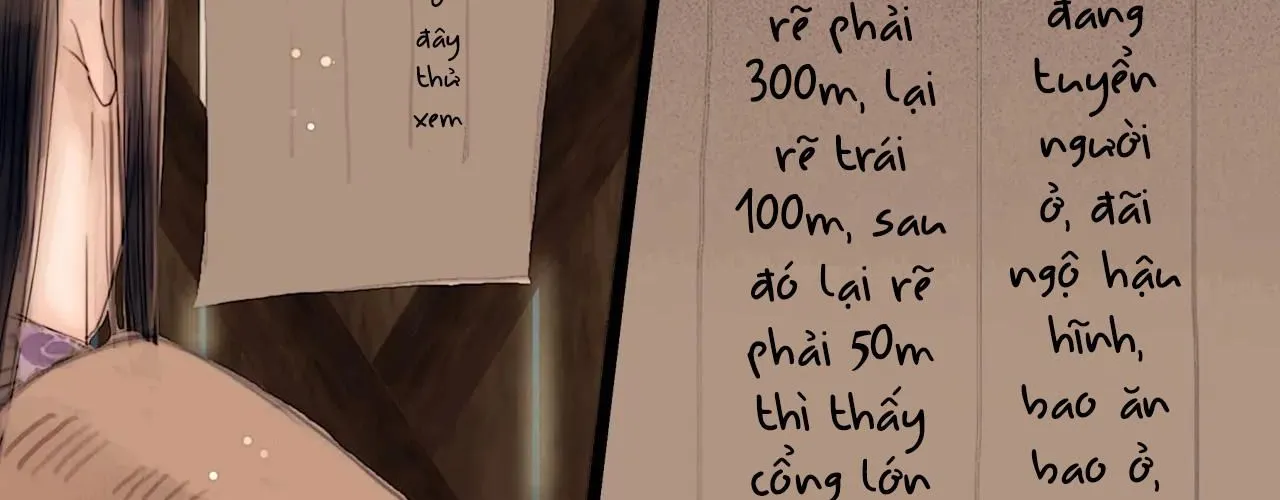 đây
thử
xem
rẽ phải
300m, lại
rẽ trái
100m, sau
đó lại rẽ
phải 50m
thì thấy
cổng lớn
đang
tuyển
người
ở, đãi
ngộ hậu
hĩnh,
bao ăn
bao ở,